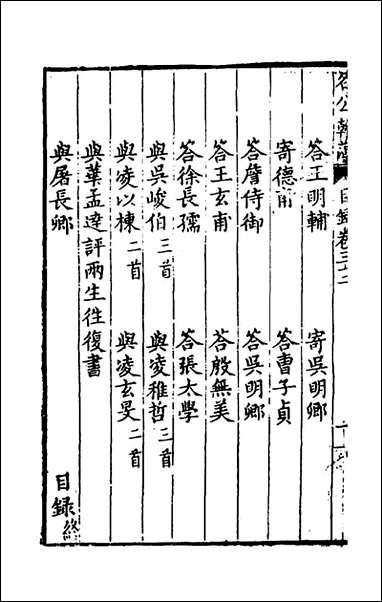 名公翰藻　目錄卷三十二
答王明輔　寄吳明卿
寄德甫　答曹子貞
答詹侍御　答吳明卿
答王玄甫　答殷無美
答徐長孺　答張太學
與吳峻伯三首　與凌稚哲三首
與凌以棟二首　與凌玄旻二首
與華孟達評兩生徃復書
與屠長卿
目録終